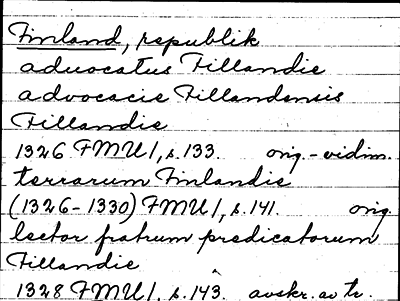 Finland, republik
aduocatus Fillandie
advocacie Fillandensis
Fillandie
1326 FMU 1, s. 133. orig. - vidim.
terrarum Finlandie
(1326-1330) FMU 1, s. 141. orig.
lector fratrum predicatorum
Fillandie
1328 FMU 1, s. 143. avskr. av tr.